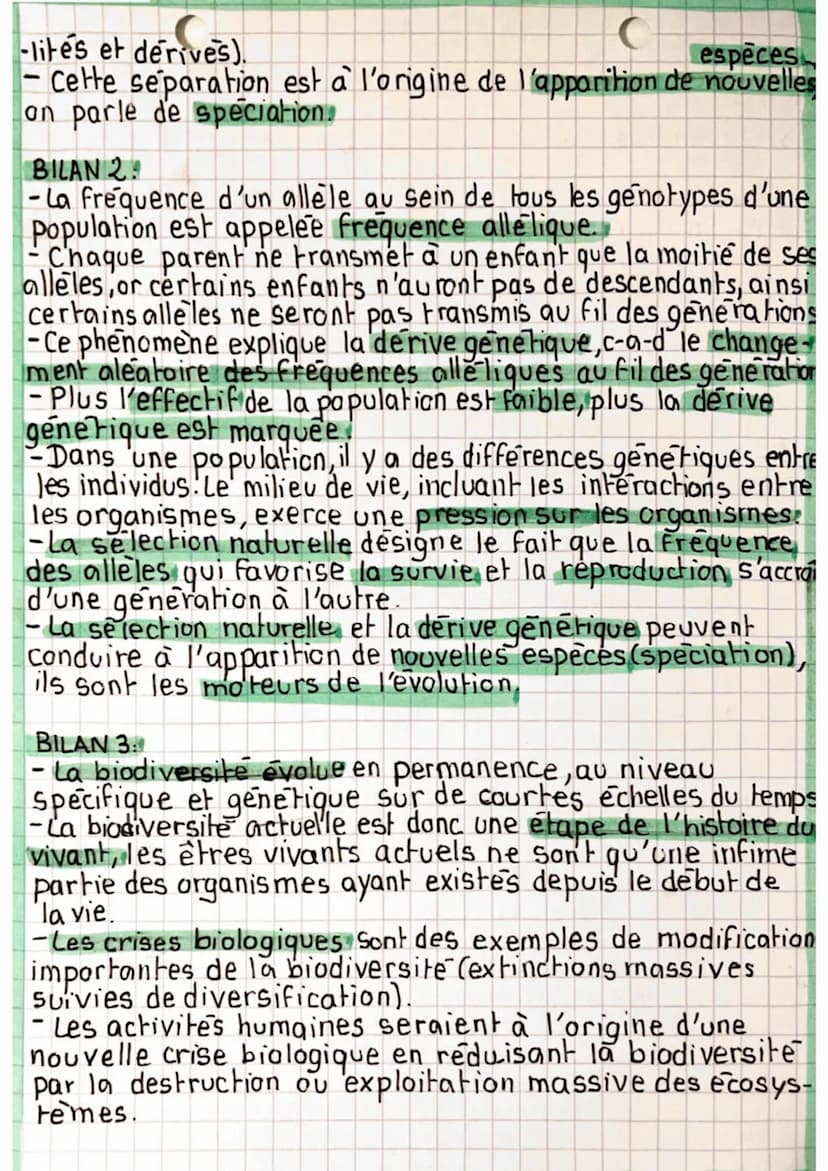 -lités et dérives).
espèces
- Cette séparation est à l'origine de l'apparition de nouvelles
on parle de spéciation.
BILAN 2:
- La fréquence d'un allèle au sein de tous les génotypes d'une
population est appelée fréquence allélique.
- Chaque parent ne transmet à un enfant que la moitié de ses
allèles, or certains enfants n'auront pas de descendants, ainsi
certains allèles ne seront pas transmis au fil des générations
- Ce phénomène explique la dérive génétique, c-a-d le change-
ment aléatoire des fréquences alléliques au fil des génération
- Plus l'effectif de la population est faible, plus la dérive
génétique est marquée.
- Dans une population, il y a des différences génétiques entre
les individus. Le milieu de vie, incluant les intéractions entre
les organismes, exerce une pression sur les organismes.
- La sélection naturelle désigne le fait que la fréquence
des allèles qui favorise la survie et la reproduction s'accroî
d'une génération à l'autre.
- La sélection naturelle et la dérive génétique peuvent
conduire à l'apparition de nouvelles espèces (spéciation),
ils sont les moteurs de l'évolution.
BILAN 3:
- La biodiversité évolue en permanence, au niveau
spécifique et génétique sur de courtes échelles du temps
- La biodiversité actuelle est donc une étape de l'histoire du
vivant, les êtres vivants actuels ne sont qu'une infime
partie des organismes ayant existés depuis le début de
la vie.
- Les crises biologiques sont des exemples de modification
importantes de la biodiversité (extinctions massives
suivies de diversification).
- Les activités humaines seraient à l'origine d'une
nouvelle crise biologique en réduisant la biodiversité
par la destruction ou exploitation massive des écosys-
tèmes.